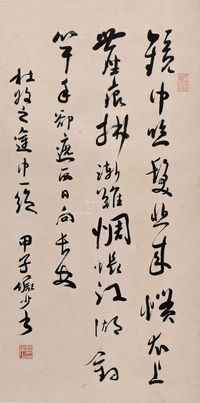 鏡中絲髮悲来慣衣上
塵痕拂漸難惆悵江湖釣
竿手卻遮西日向長安
杜牧之途中一絕 甲子